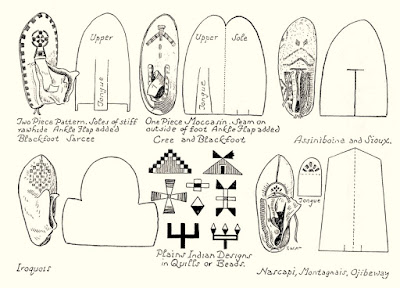 Upper
Tongue
Upper
Sole
Tongue
Two Piece Pattern. Soles of stiff
rawhide Ankle Flap added
Blackfoot Sarcee
One Piece Moccasin. Seam on
outside of foot Ankle Flap added
Cree and Blackfoot
Assiniboine and Sioux.
Tongue
Iroquois
Plains Indian Designs
in Quills or Beads.
Nascapi, Montagnais, Ojibeway